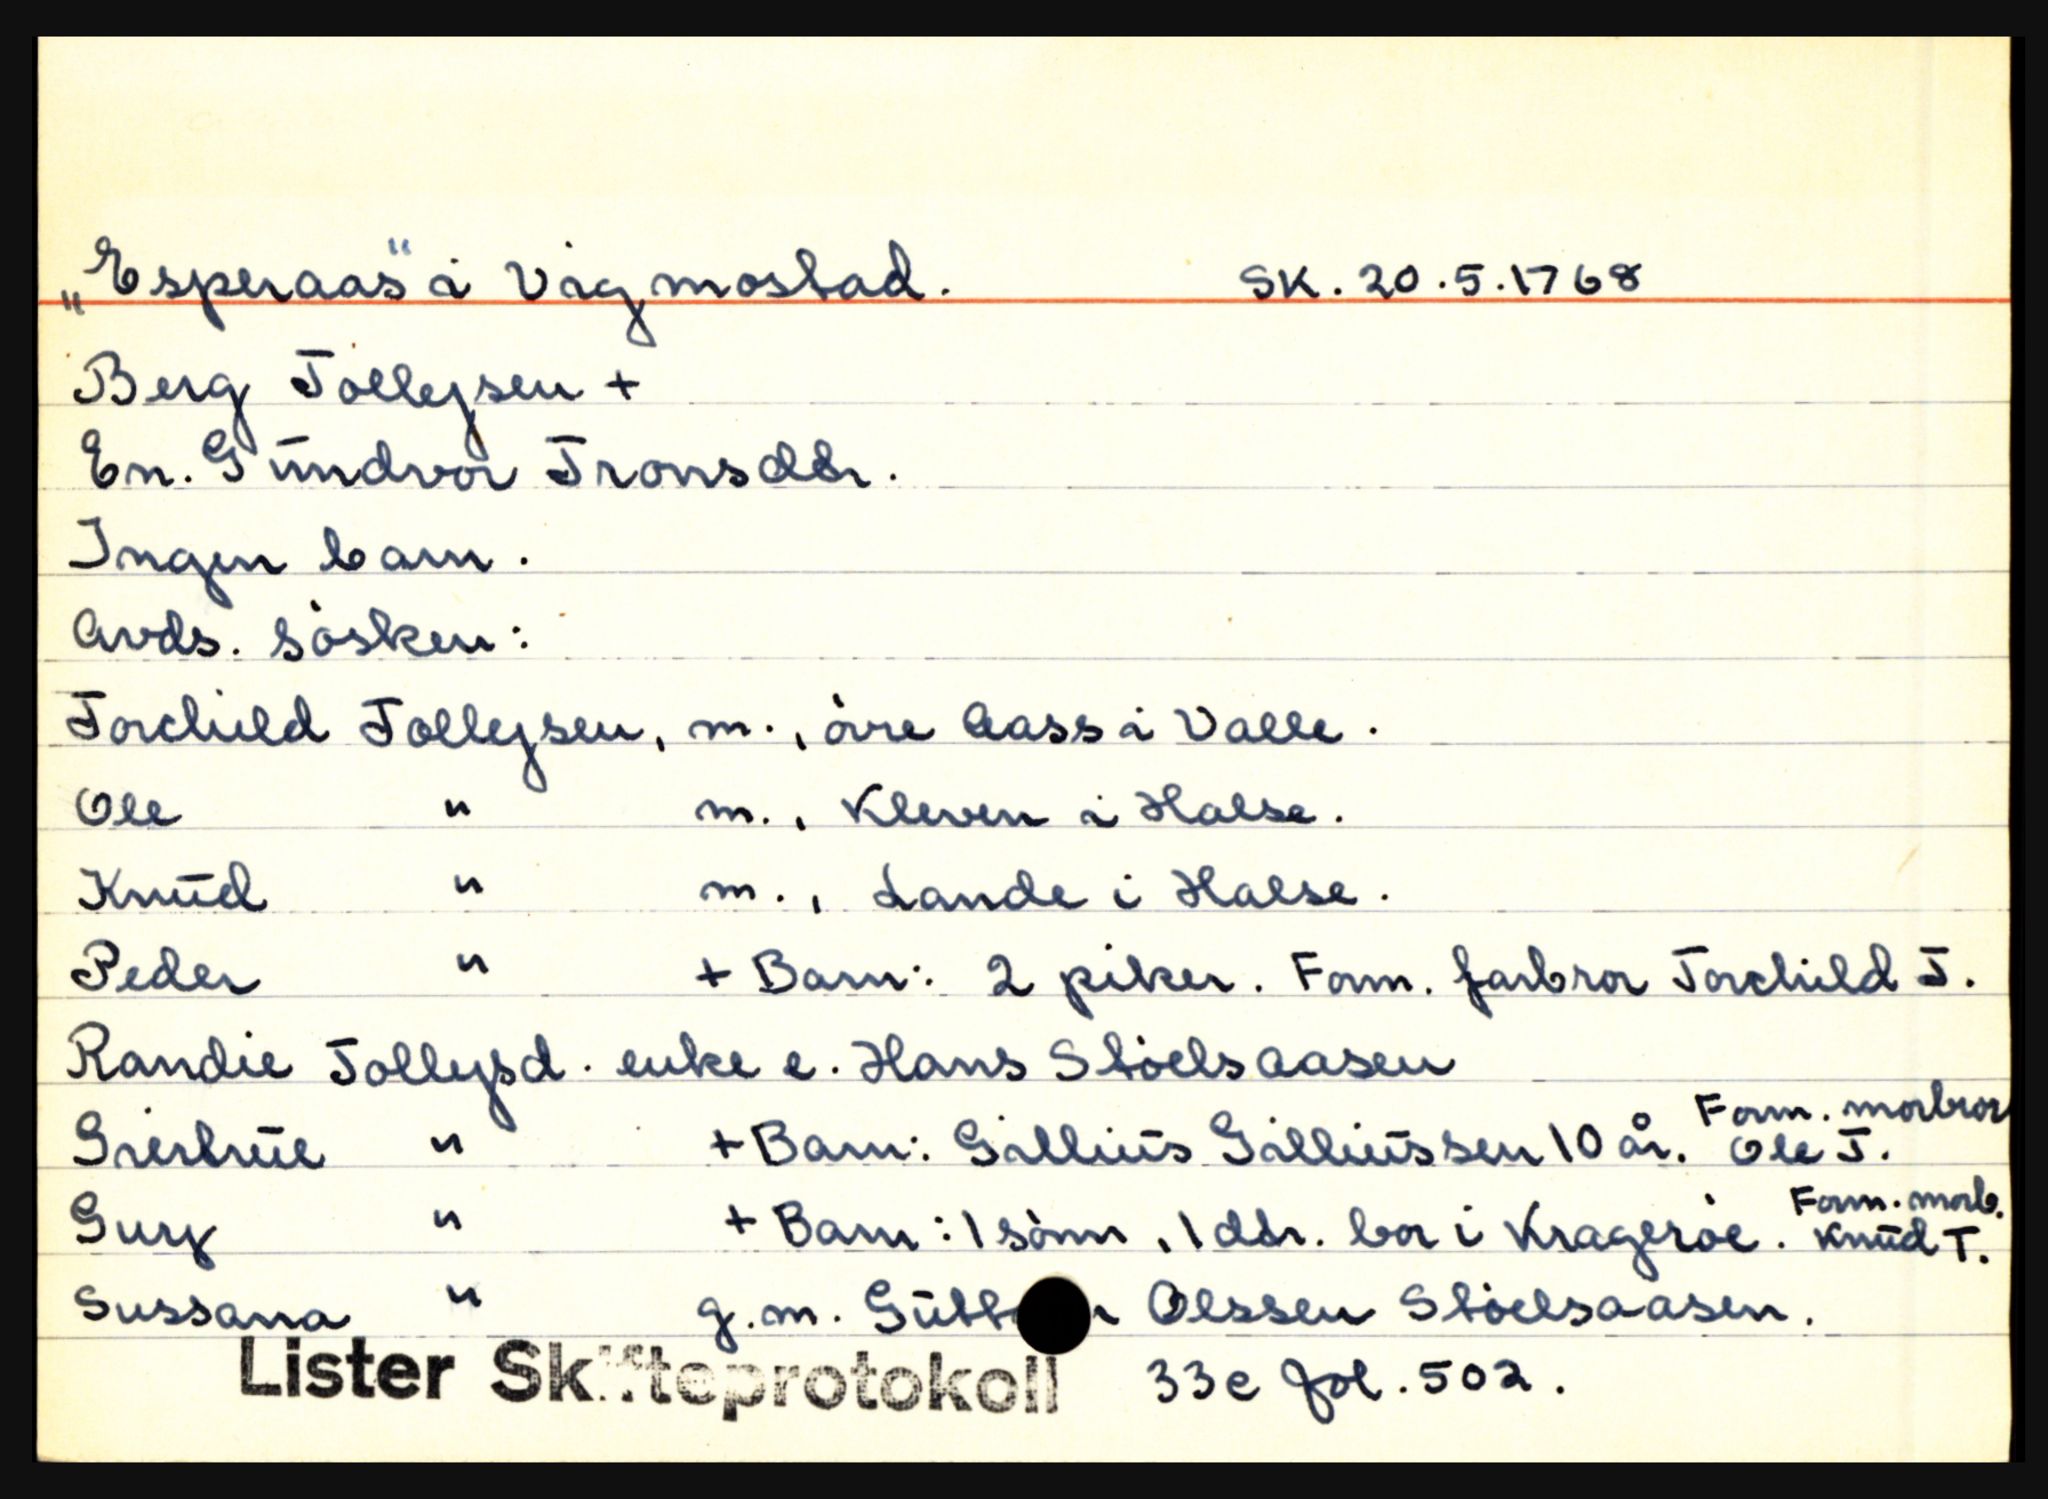 „Esperaas" i Vigmostad. SK. 20.5.1768
Berg Tollejsen +
En. Gūndvor Tronsdtr.
Ingen barn.
Avds. sösken:
Torchield Tollejsen, m., övre Aass i Valle.
Ole " m., Kleven i Halse.
Knūd " m., Lande i Halse.
Peder " + Barn: 2 piker. Form. farbror Torchild T.
Randie Tollejsd. enke e. Hans Stöelsaasen
Giertrūe " + Barn: Gilliūs Gilliūssen 10 år. Form. morbror Ole T.
Gury " + Barn: 1 sönn, 1 dtr. bor i Krageröe. Form. morb. Knūd T.
Sussana " g.m. Olssen Stöelsaasen.
Lister Skifteprotokoll 33e fol. 502.